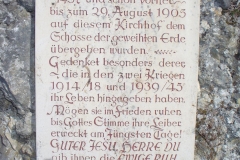 1451 und schon vorher
bis zum 29. August 1905
auf diesem Kirchhof dem
Schosse der geweihten Erde
übergeben wurden.
Gedenket besonders derer
die in den zwei Kriegen
1914/18 und 1939/45
ihr Leben hingegeben haben.
Mögen sie im Frieden ruhen,
bis Gottes Stimme ihre Leiber
erweckt am Jüngsten Tage!
GUTER JESU, HERRE DU
gib ihnen die EWIGE RUH